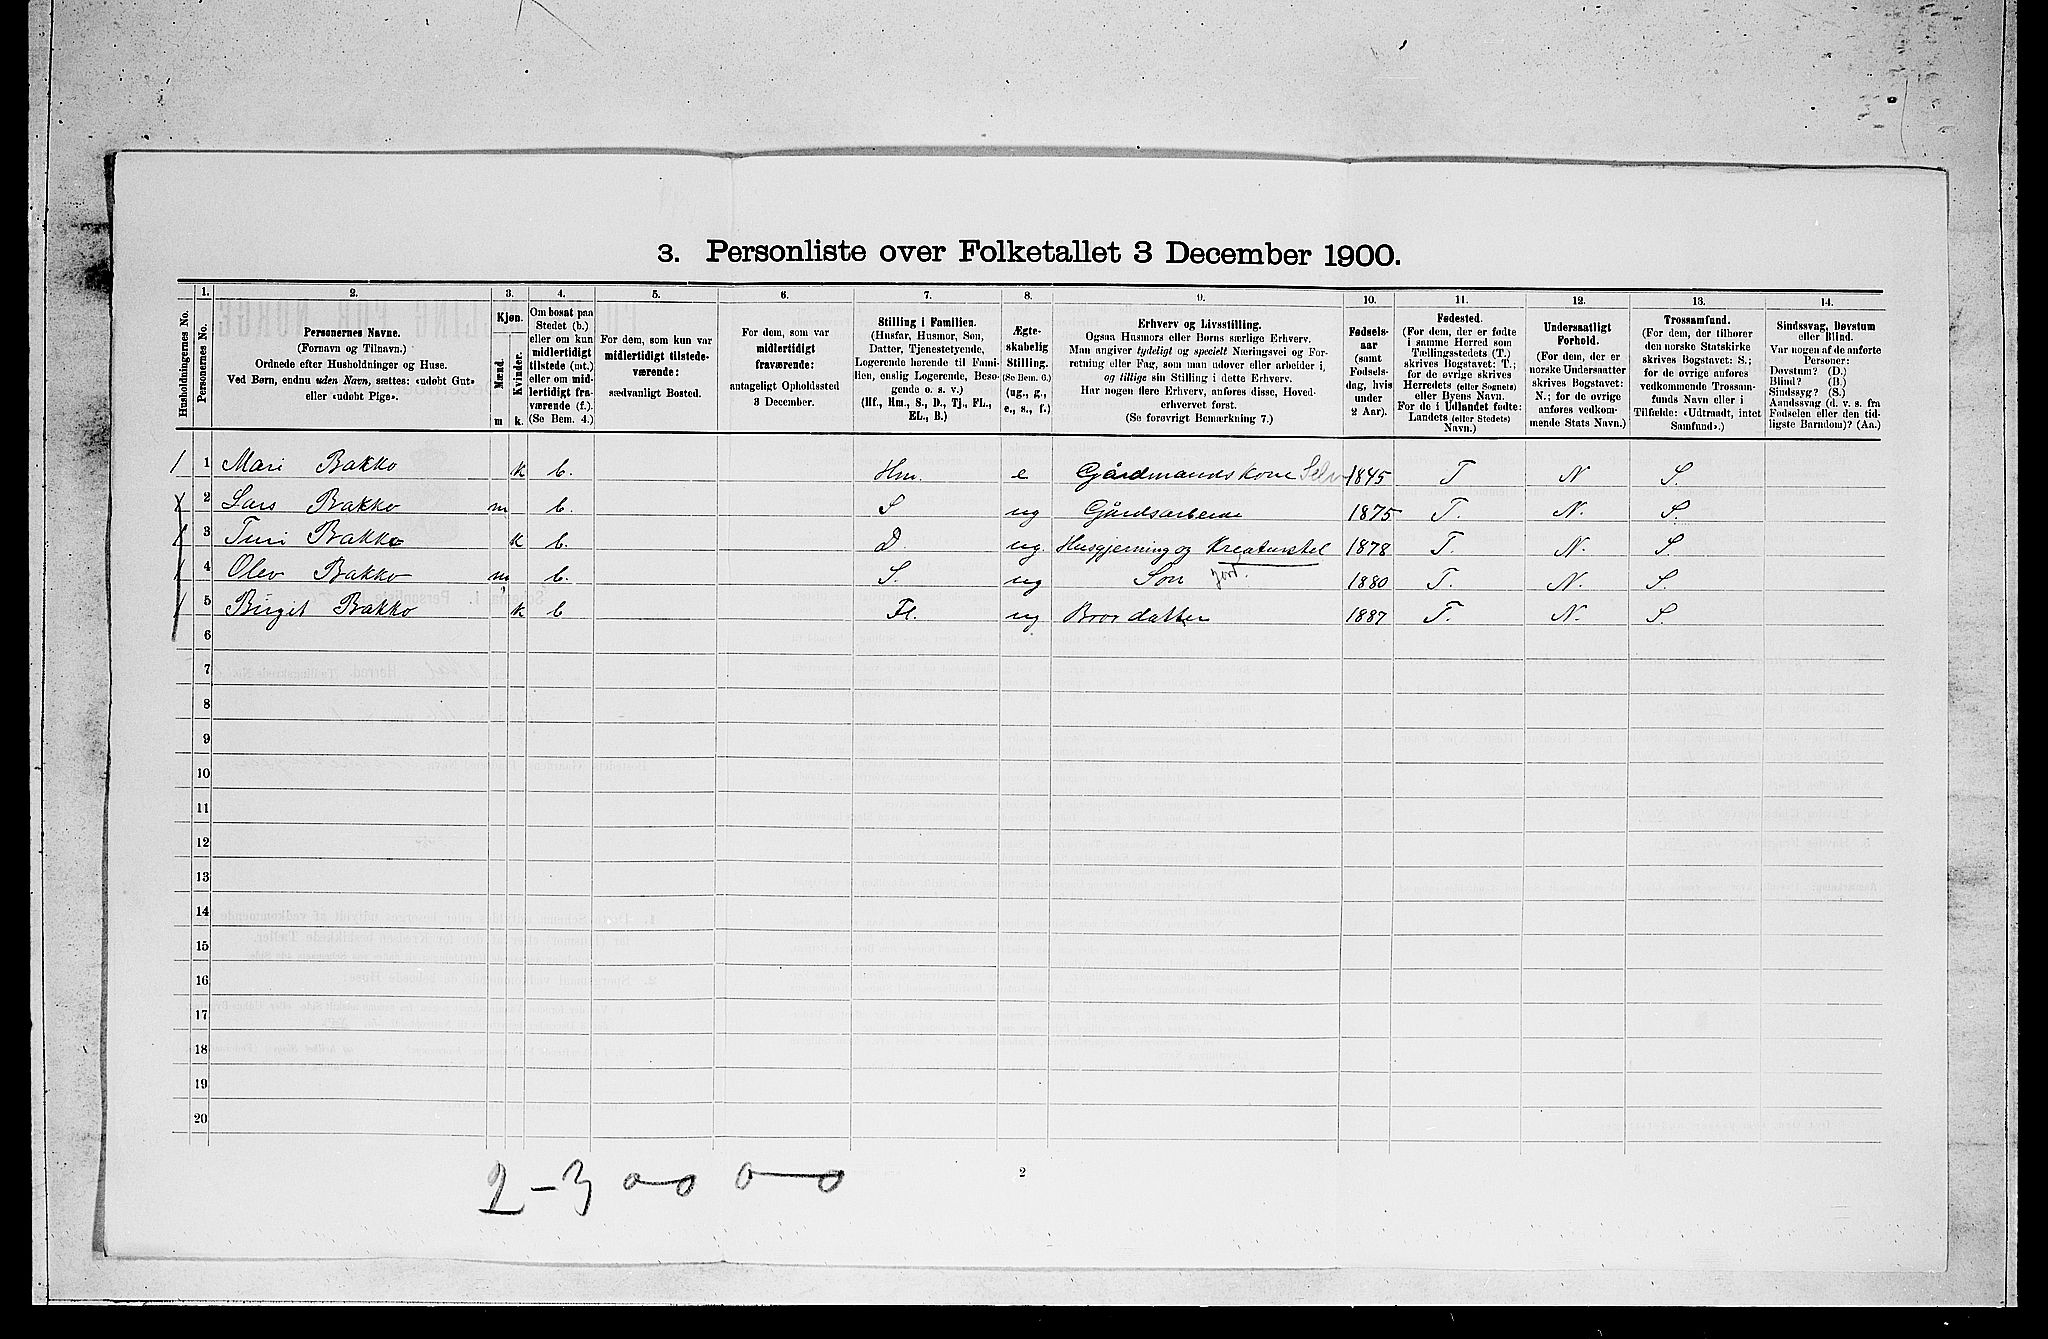 3. Personliste over Folketallet 3 December 1900.
Husholdningernes No.
1.
Personernes No.
2.
Personernes Navne.
(Fornavn og Tilnavn.)
Ordnede efter Husholdninger og Huse.
Ved Børn, endnu uden Navn, sættes: «udøbt Gut»
eller «udøbt Pige».
3.
Kjøn.
Mænd.
Kvinder.
m
k.
4.
Om bosat paa
Stedet (b.)
eller om kun
midlertidigt
tilstede (mt.)
eller om mid-
lertidigt fra-
værende (f.).
(Se Bem. 4.)
5.
For dem, som kun var
midlertidigt tilstede-
værende:
sædvanligt Bosted.
6.
For dem, som var
midlertidigt
fraværende:
antageligt Opholdssted
3 December.
7.
Stilling i Familien.
(Husfar, Husmor, Søn,
Datter, Tjenestetyende,
Logerende hørende til Fami-
lien, enslig Logerende, Besø-
gende o. s. v.)
(Hf., Hm., S., D., Tj., FL.,
EL., B.)
8.
Ægte-
skabelig
Stilling.
(Se Bem. 6.)
(ug., g.,
e., s., f.)
9.
Erhverv og Livsstilling.
Ogsaa Husmors eller Børns særlige Erhverv.
Man angiver tydeligt og specielt Næringsvei og For-
retning eller Fag, som man udøver eller arbeider i,
og tillige sin Stilling i dette Erhverv.
Har nogen flere Erhverv, anføres disse, Hoved-
erhvervet først.
(Se forøvrigt Bemærkning 7.)
10.
Fødsels-
aar
(samt
Fødsels-
dag, hvis
under
2 Aar).
11.
Fødested.
(For dem, der er fødte
i samme Herred som
Tællingsstedets (T.)
skrives Bogstavet: T.;
for de øvrige skrives
Herredets (eller Sognets)
eller Byens Navn.
For de i Udlandet fødte:
Landets (eller Stedets)
Navn.)
12.
Undersaatligt
Forhold.
(For dem, der er
norske Undersaatter
skrives Bogstavet:
N.; for de øvrige
anføres vedkom-
mende Stats Navn.)
13.
Trossamfund.
(For dem, der tilhører
den norske Statskirke
skrives Bogstavet: S.;
for de øvrige anføres
vedkommende Trossam-
funds Navn eller i
Tilfælde: «Udtraadt, intet
Samfund».)
14.
Sindssvag, Døvstum
eller Blind.
Var nogen af de anførte
Personer:
Døvstum? (D.)
Blind? (B.)
Sindssyg? (S.)
Aandssvag (d. v. s. fra
Fødselen eller den tid-
ligste Barndom)? (Aa.)
1 Mari Bakko k b. Hm. e Gårdmandskone Selv 1845 T N S.
2 Lars Bakko m b. S ug Gårdsarbeide 1875 T. N. S.
3 Turi Bakko k b. D. ug. Husgjerning og Kreaturstel 1878 T. N. S.
4 Olev Bakko m b. S. ug Søn jord. 1880 T. N. S.
5 Birgit Bakko k b Fl. ug Brordatter 1887 T. N. S.
6
7
8
9
10
11
12
13
14
15
16
17
18
19
20
2
2 – 3 0–0 0–0